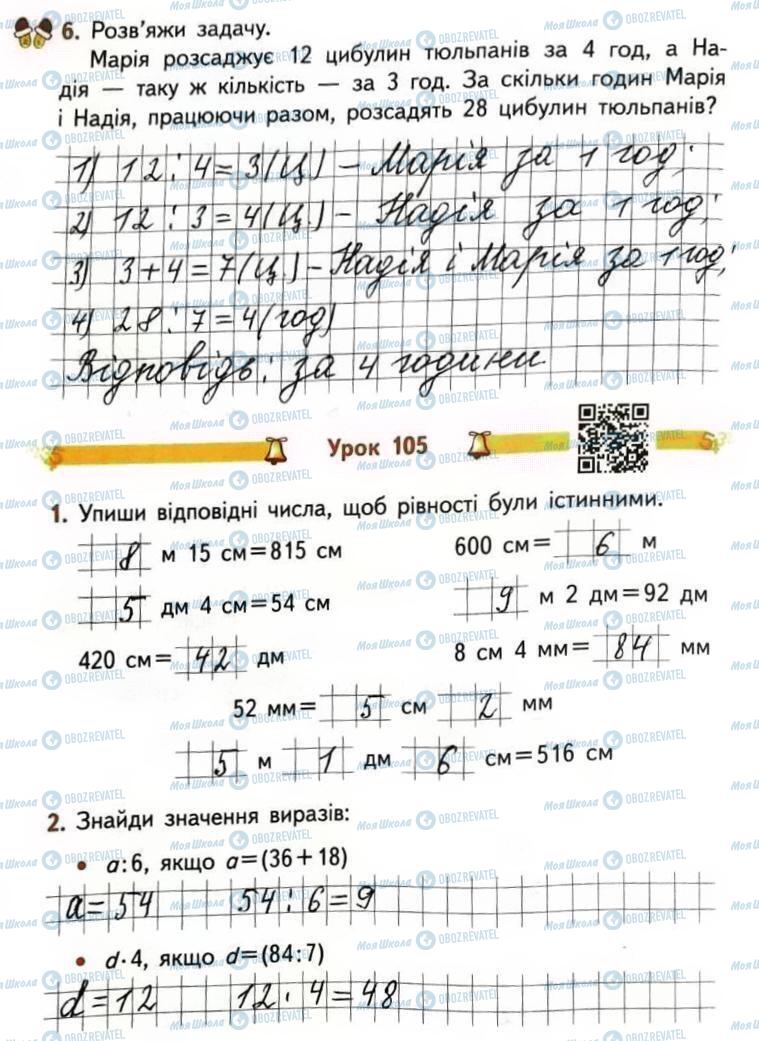 6. Розв'яжи задачу.
Марія розсаджує 12 цибулин тюльпанів за 4 год, а На-
дія — таку ж кількість — за 3 год. За скільки годин Марія
і Надія, працюючи разом, розсадять 28 цибулин тюльпанів?
1) 12 : 4 = 3 (ц.) – Марія за 1 год;
2) 12 : 3 = 4 (ц.) – Надія за 1 год;
3) 3 + 4 = 7 (ц.) – Надія і Марія за 1 год;
4) 28 : 7 = 4 (год)
Відповідь: за 4 години.
Урок 105
1. Упиши відповідні числа, щоб рівності були істинними.
8 м 15 см = 815 см 600 см = 6 м
5 дм 4 см = 54 см 9 м 2 дм = 92 дм
420 см = 42 дм 8 см 4 мм = 84 мм
52 мм = 5 см 2 мм
5 м 1 дм 6 см = 516 см
2. Знайди значення виразів:
• a : 6, якщо a = (36 + 18)
a = 54 54 : 6 = 9
• d · 4, якщо d = (84 : 7)
d = 12 12 · 4 = 48
МояШкола OBOZREVATEL